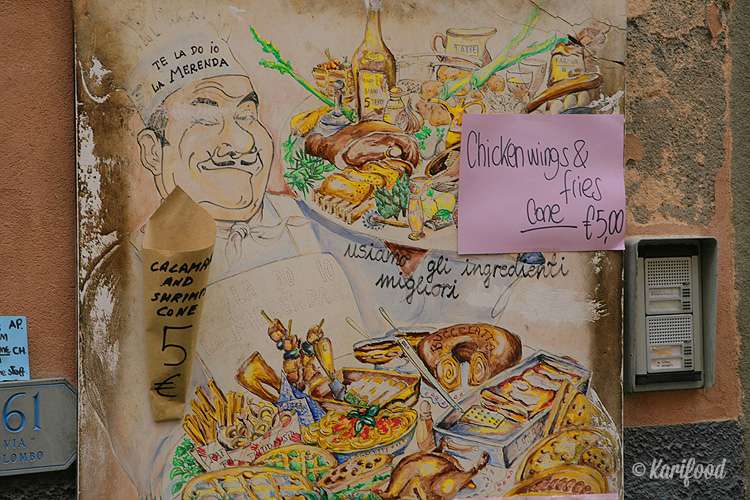 TE LA DO IO
LA MERENDA
Chicken wings &
fries
Cone €5,00
usiamo gli ingredienti
migliori
CALAMARI
AND
SHRIMP
CONE
5
€
AP.
CH
61
VIA
LOMBO
© Karifood